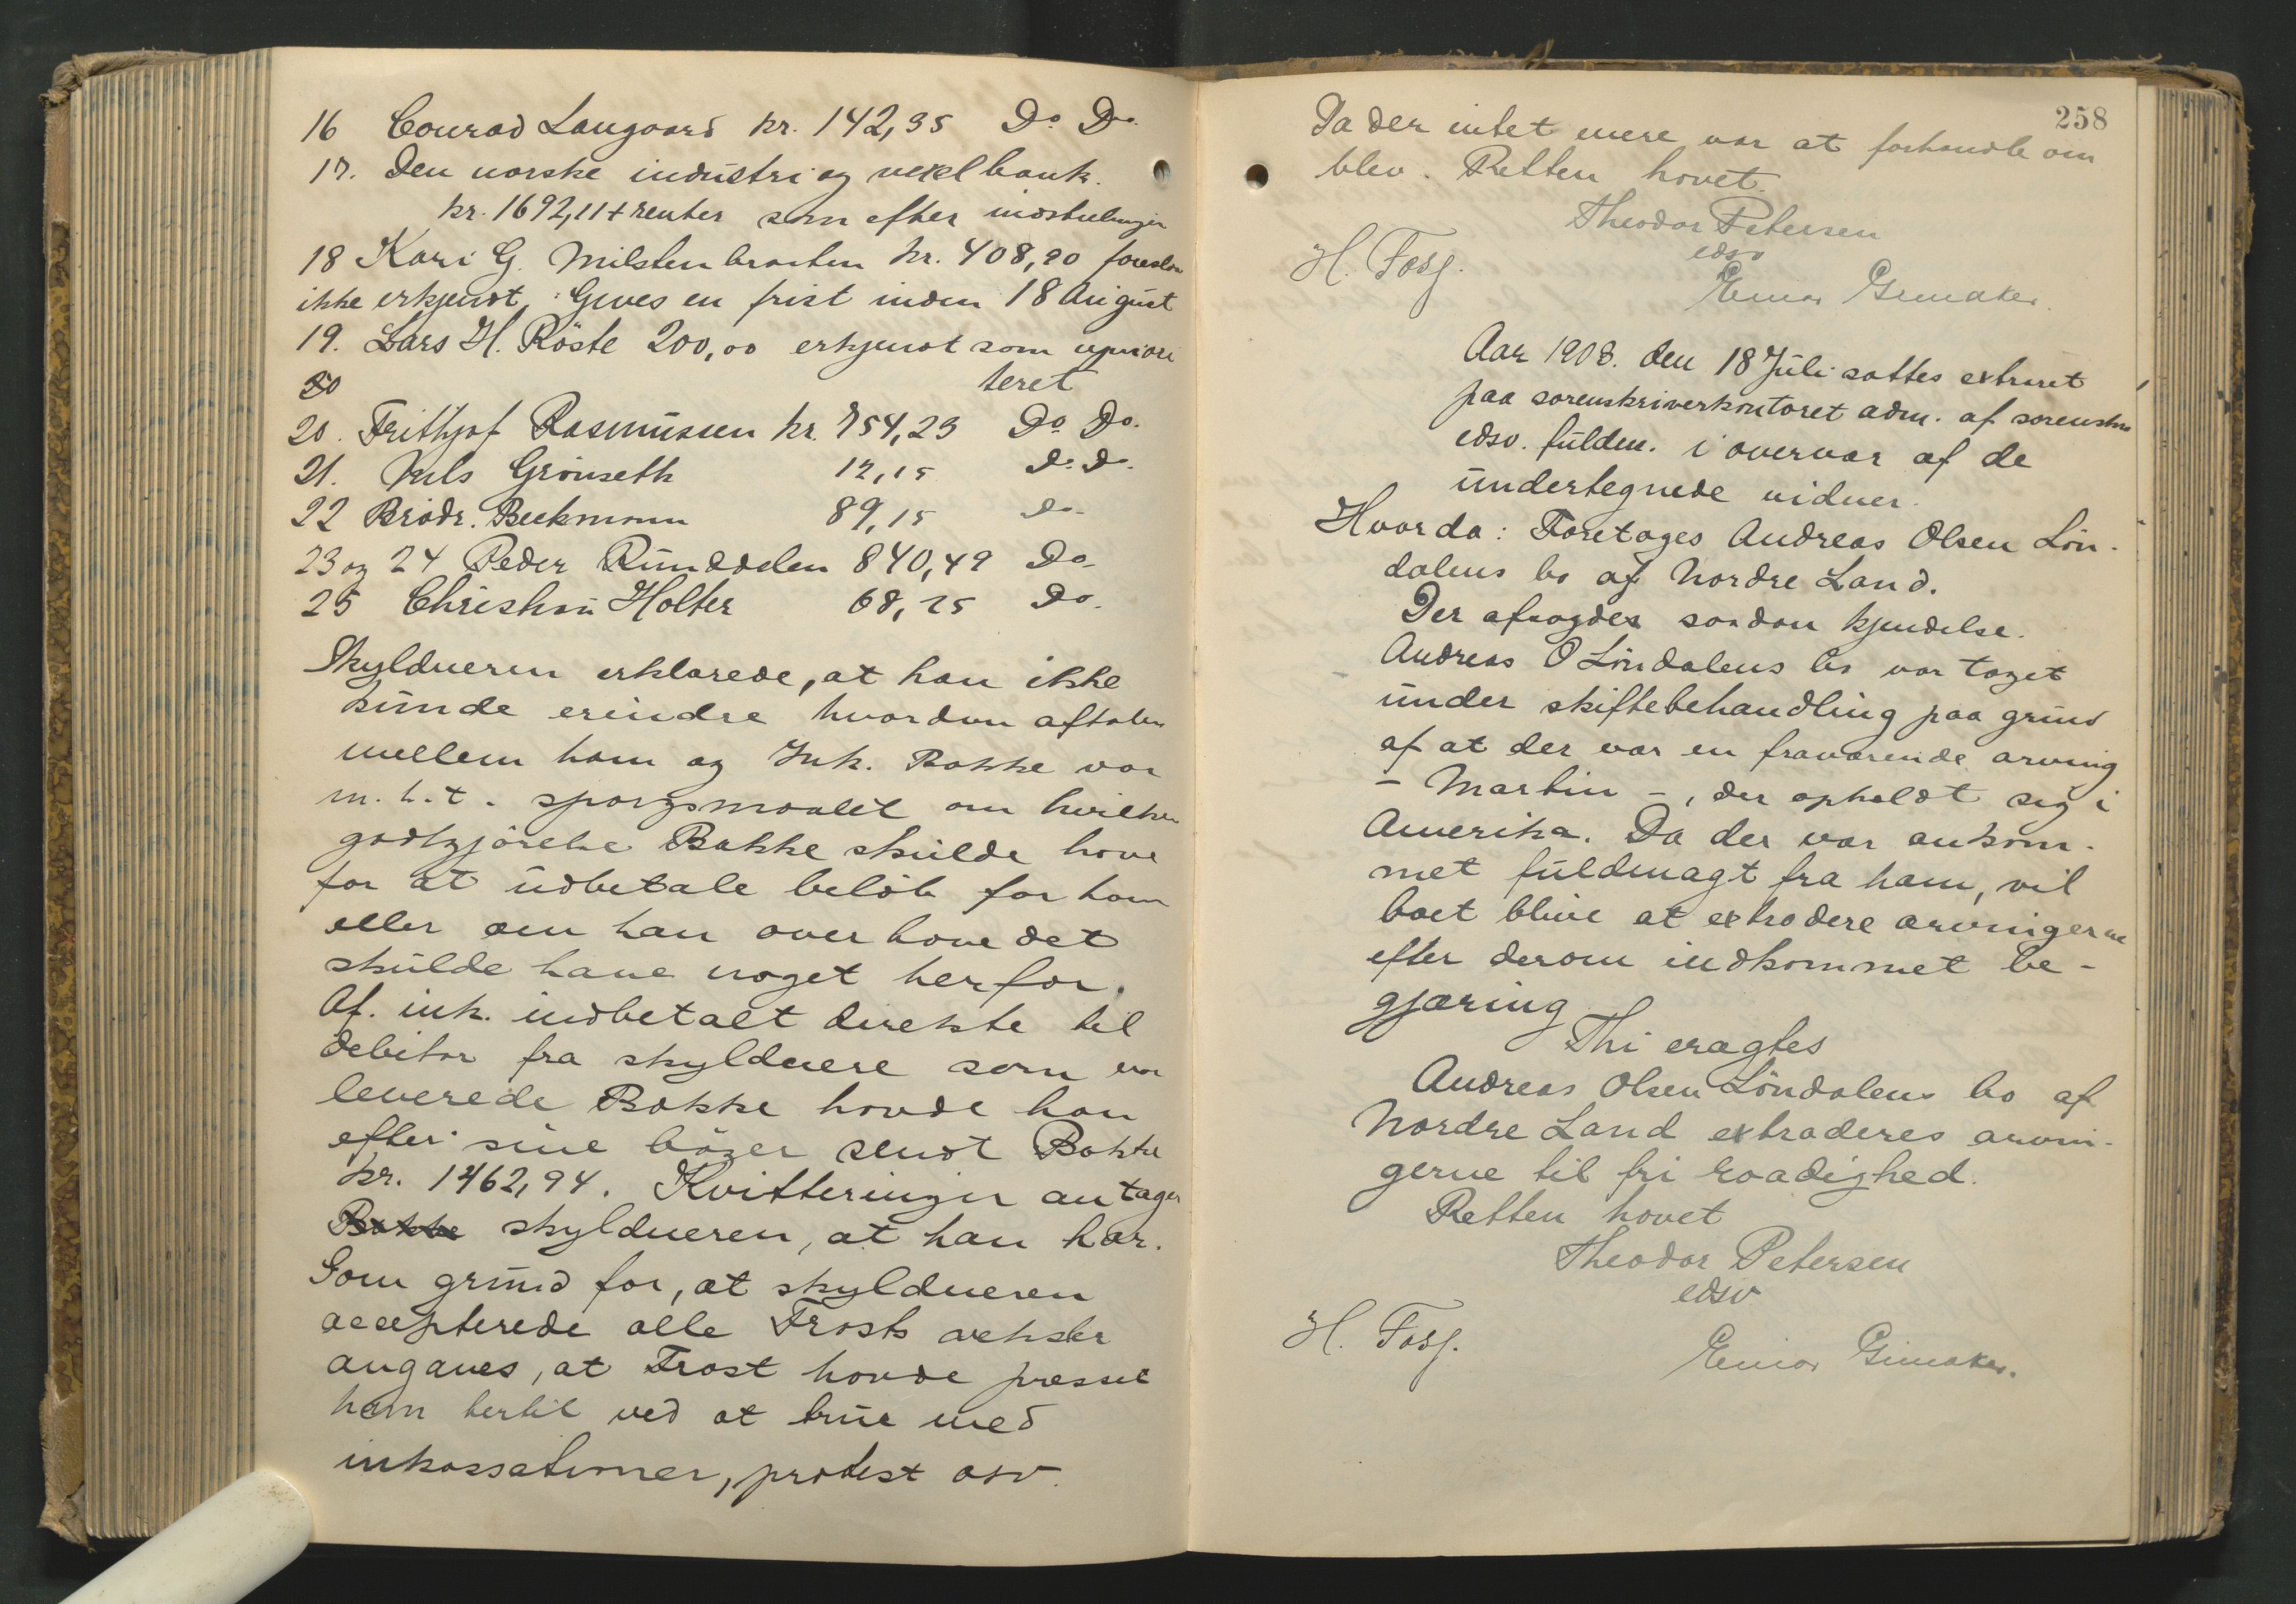 16 Conrad Langaard kr. 142,35 Do Do
17. Den norske industri og vexelbank.
kr. 1692,11 + renter som efter indstillingen
18 Kari G. Milstenbraaten kr. 408,20
ikke erkjendt. Gives en frist inden 18 August
19. Lars H. Röste 200,00 erkjendt som upriori
teret
20. Frithjof Rasmussen kr. 754,23 Do Do.
21. Nils Grönseth 12,15 Do Do.
22 Brödr. Beckmann 89,15 Do
23 og 24 Peder Runddelen 840,49 Do
25 Christian Holter 68,25 Do.
Skyldneren erklærede, at han ikke
kunde erindre hvordan aftalen
mellem ham og Ink. Bakke var
m.h.t. spørgsmaalet om hvilken
godtgjörelse Bakke skulde have
for at udbetale belöb for ham
eller om han over hove det
skulde have noget herfor.
Af. ink. indbetalt direkte til
debitor fra skyldnere som var
leverede Bakke havde han
efter sine böger sendt Bakke
kr. 1462,94. Kvitteringer antager
Bakke skyldneren, at han har.
Som grund for, at skyldneren
accepterede alle Frosts veksler
angaves, at Frost havde presset
ham hertil ved at true med
inkassationer, protest osv.
258
Da der intet mere var at forhandle om
blev. Retten hævet.
Theodor Petersen
edsv
H. Fosg.
Einar Grimaker.
Aar 1908. den 18 Juli sattes extraret
paa sorenskriverkontoret adm. af sorenskr
edsv. fuldm. i overvær af de
undertegnede vidner.
Hvorda: Foretages Andreas Olsen Lön-
dalens bo af Nordre Land.
Der afsagdes saadan kjendelse.
Andreas O Löndalens bo var taget
under skiftebehandling paa grund
af at der var en fraværende arving
- Martin -, der opholdt sig i
Amerika. Da der var ankom-
met fuldmagt fra ham, vil
boet blive at extradere arvingerne
efter derom indkommet be-
gjæring
Thi eragtes
Andreas Olsen Löndalens bo af
Nordre Land extraderes arvin-
gerne til fri raadighed.
Retten hævet
Theodor Petersen
edsv
H. Fosg.
Einar Grimaker.